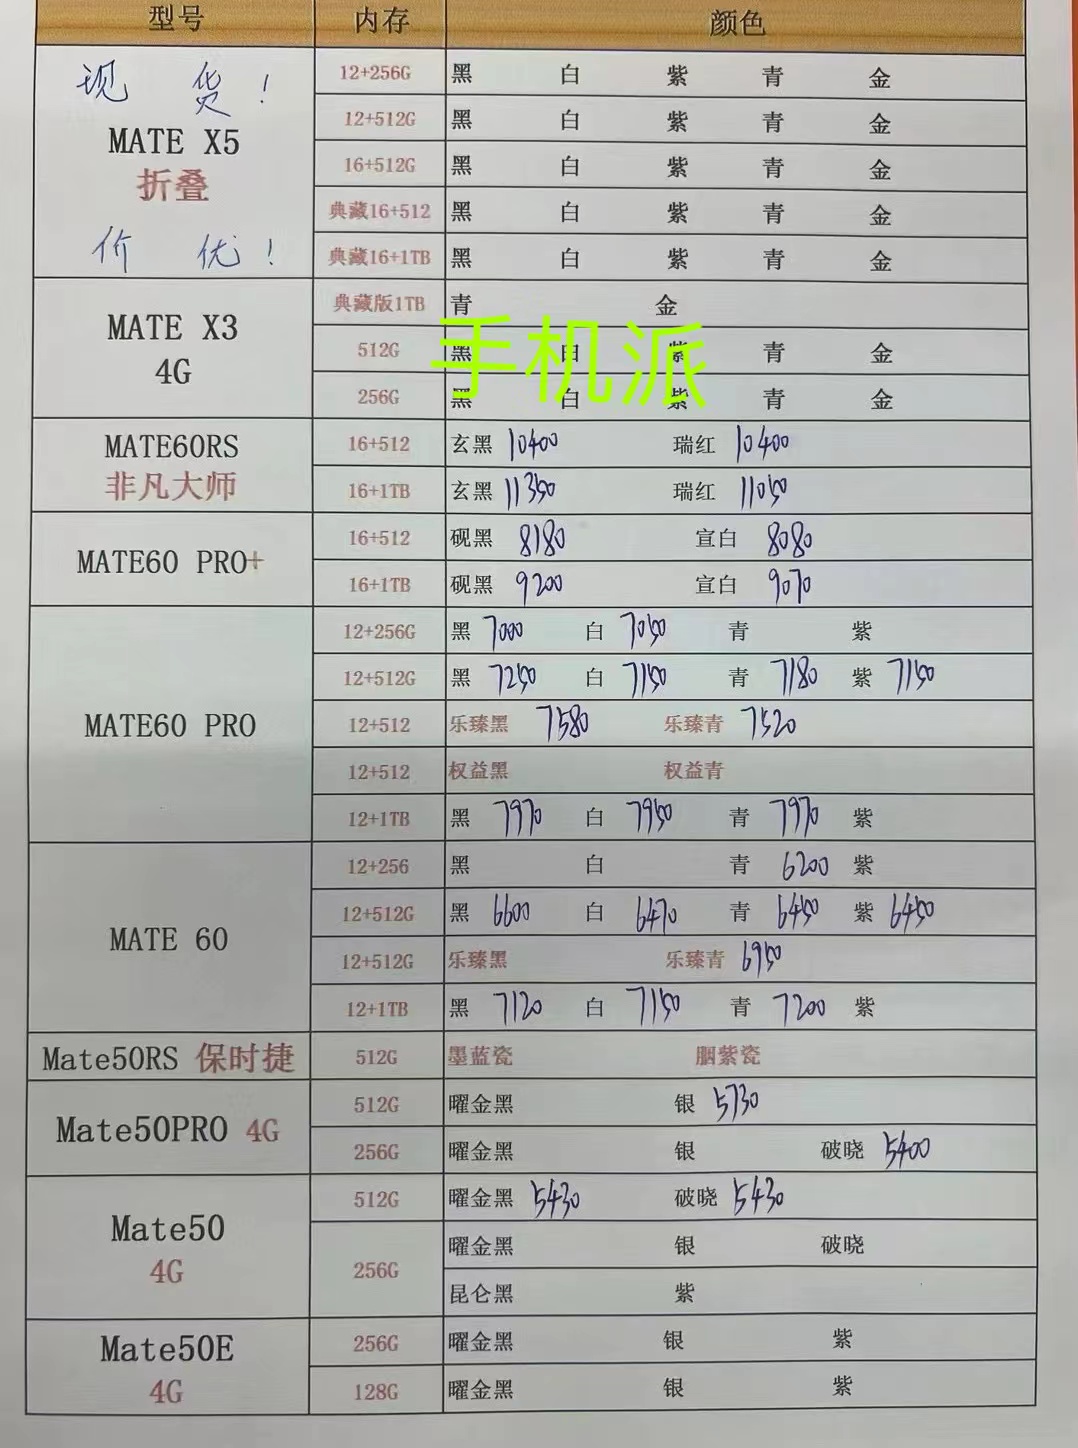 型号 内存 颜色
现 货！
MATE X5
折叠
价 优！
12+256G 黑 白 紫 青 金
12+512G 黑 白 紫 青 金
16+512G 黑 白 紫 青 金
典藏16+512 黑 白 紫 青 金
典藏16+1TB 黑 白 紫 青 金
MATE X3
4G
典藏版1TB 青 金
手机派
512G 黑 白 紫 青 金
256G 黑 白 紫 青 金
MATE60RS
非凡大师
16+512 玄黑 10400 瑞红 10400
16+1TB 玄黑 11350 瑞红 11050
MATE60 PRO+
16+512 砚黑 8180 宣白 8080
16+1TB 砚黑 9200 宣白 9070
MATE60 PRO
12+256G 黑 7000 白 7050 青 紫
12+512G 黑 7250 白 7150 青 7180 紫 7150
12+512 乐臻黑 7580 乐臻青 7520
12+512 权益黑 权益青
12+1TB 黑 7970 白 7950 青 7970 紫
MATE 60
12+256 黑 白 青 6200 紫
12+512G 黑 6600 白 6470 青 6450 紫 6450
12+512G 乐臻黑 乐臻青 6950
12+1TB 黑 7120 白 7150 青 7200 紫
Mate50RS 保时捷 512G 墨蓝瓷 胭紫瓷
Mate50PRO 4G
512G 曜金黑 银 5730
256G 曜金黑 银 破晓 5400
Mate50
4G
512G 曜金黑 5430 破晓 5430
256G 曜金黑 银 破晓
昆仑黑 紫
Mate50E
4G
256G 曜金黑 银 紫
128G 曜金黑 银 紫